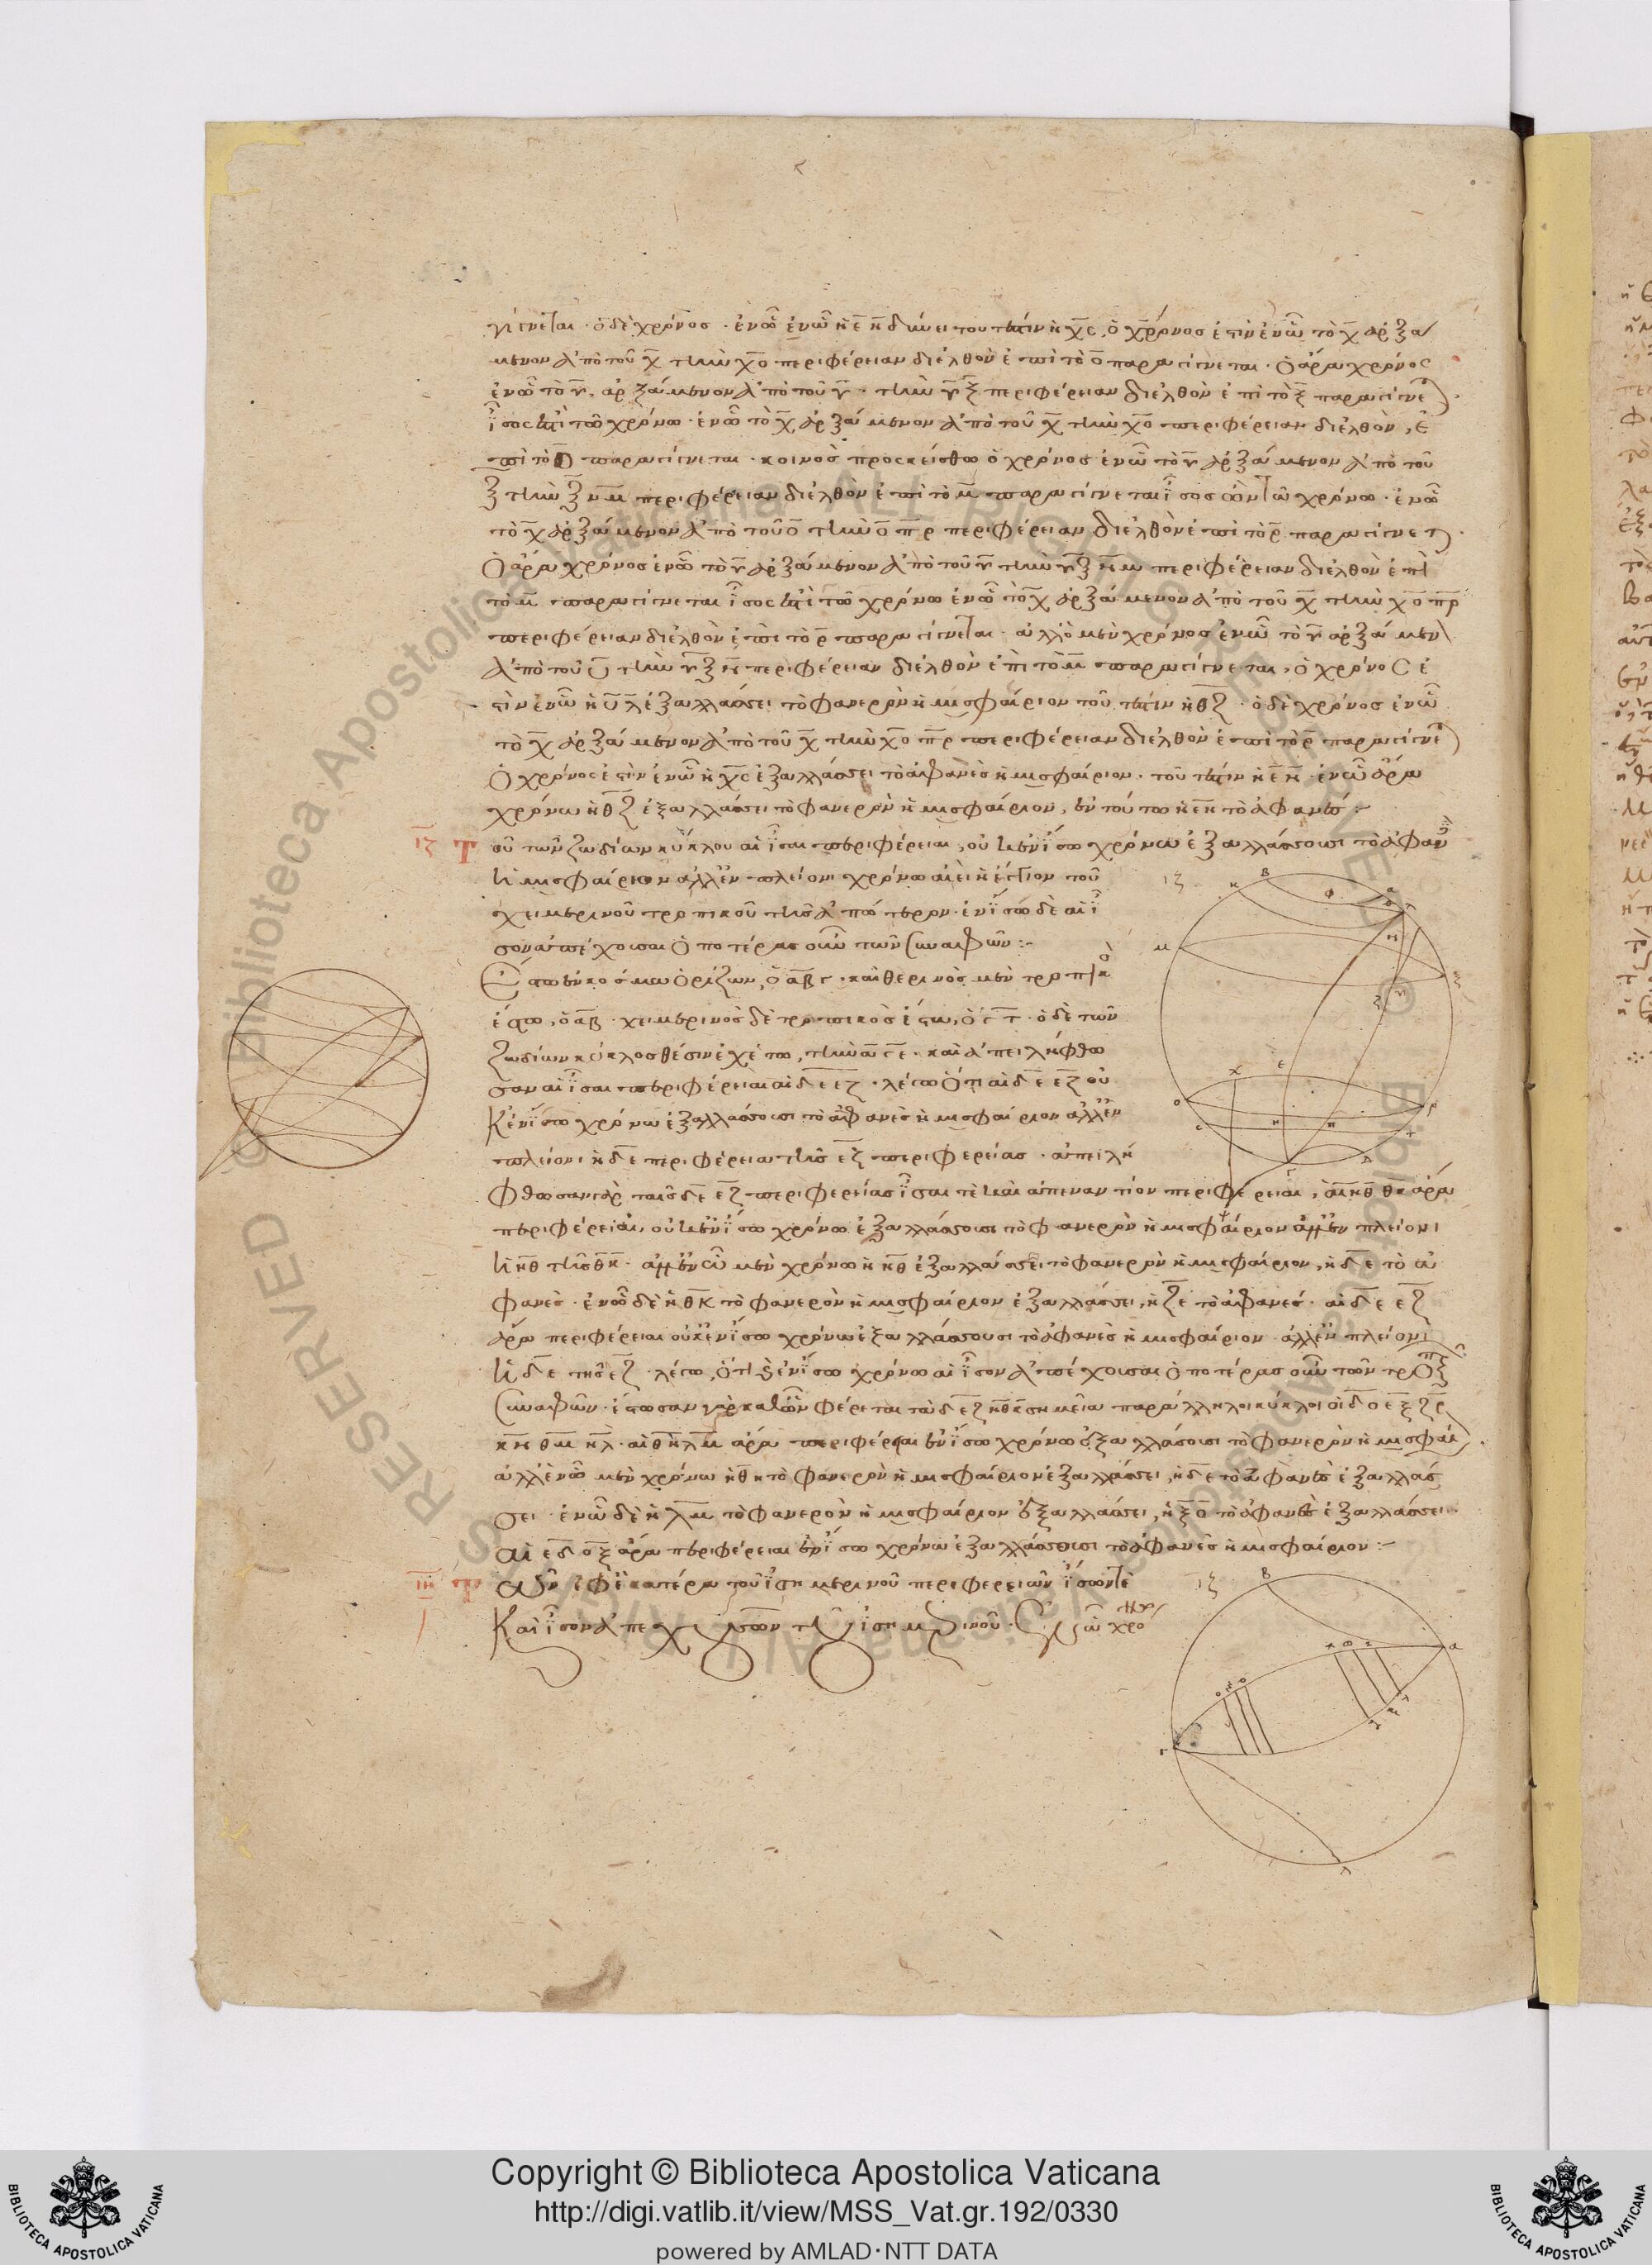 γίνεται · ὁ δὲ χρόνος · ἐν ᾧ ἡ ΕΚ δύνει τουτέστιν ἡ ΧΣ, ὁ χρόνος ἐστὶν ἐν ᾧ τὸ Χ ἀρξά
μενον ἀπὸ τοῦ Χ τὴν ΧΟ περιφέρειαν διελθὸν ἐπὶ τὸ Ο παραγίνεται · ὁ ἄρα χρόνος
ἐν ᾧ τὸ Υ, ἀρξάμενον ἀπὸ τοῦ Υ · τὴν ΥΞ περιφέρειαν διελθὸν ἐπὶ τὸ Ξ παραγίνεται ·
ἴσος ἐστὶ τῷ χρόνῳ · ἐν ᾧ τὸ Χ ἀρξάμενον ἀπὸ τοῦ Χ τὴν ΧΟ περιφέρειαν διελθὸν, ἐ
πὶ τὸ Ο παραγίνεται · κοινὸς προσκείσθω ὁ χρόνος ἐν ᾧ τὸ Υ ἀρξάμενον ἀπὸ τοῦ
Ξ τὴν ΞΝΜ περιφέρειαν διελθὸν ἐπὶ τὸ Μ παραγίνεται ἴσος ὢν τῷ χρόνῳ · ἐν ᾧ
τὸ Χ ἀρξάμενον ἀπὸ τοῦ Ο τὴν ΟΠΡ περιφέρειαν διελθὸν ἐπὶ τὸ Ρ παραγίνεται ·
Ὁ ἄρα χρόνος ἐν ᾧ τὸ Υ ἀρξάμενον ἀπὸ τοῦ Υ τὴν ΥΞΝΜ περιφέρειαν διελθὸν ἐπὶ
τὸ Μ παραγίνεται ἴσος ἐστὶ τῷ χρόνῳ ἐν ᾧ τὸ Χ ἀρξάμενον ἀπὸ τοῦ Χ τὴν ΧΟΠΡ
περιφέρειαν διελθὸν ἐπὶ τὸ Ρ παραγίνεται · ἀλλ' ὁ μὲν χρόνος ἐν ᾧ τὸ Υ ἀρξάμεν
ἀπὸ τοῦ Υ τὴν ΥΞΝ περιφέρειαν διελθὸν ἐπὶ τὸ Μ παραγίνεται, ὁ χρόνος ἐ
στὶν ἐν ᾧ ἡ ΥΛ ἐξαλλάσσει τὸ φανερὸν ἡμισφαίριον τουτέστιν ἡ ΘΖ · ὁ δὲ χρόνος ἐν ᾧ
τὸ Χ ἀρξάμενον ἀπὸ τοῦ Χ τὴν ΧΟΠΡ περιφέρειαν διελθὸν ἐπὶ τὸ Ρ παραγίνεται
Ὁ χρόνος ἐστὶν ἐν ᾧ ἡ ΧΣ ἐξαλλάσσει τὸ ἀφανὲς ἡμισφαίριον · τουτέστιν ἡ ΕΚ · ἐν ᾧ ἄρα
χρόνῳ ἡ ΘΖ ἐξαλλάσσει τὸ φανερὸν ἡμισφαίριον, ἐν τούτῳ ἡ ΕΚ τὸ ἀφανές :
ιζ Τοῦ τῶν ζωδίων κύκλου αἱ ἴσαι περιφέρειαι, οὐκ ἐν ἴσῳ χρόνῳ ἐξαλλάσσουσι τὸ ἀφανὲς
ἡμισφαίριον ἀλλ' ἐν πλείονι χρόνῳ αἰεὶ ἡ ἔγγιον τοῦ
χειμερινοῦ τροπικοῦ τῆς ἀπώτερον · ἐν ἴσῳ δὲ αἱ ἴ
σον ἀπέχουσαι ὁποτέρας οὖν τῶν συναφῶν :-
Ἔστω ἐν κόσμῳ ὁρίζων, ὁ ΑΒΓ · καὶ θερινὸς μὲν τροπικὸ
ἔστω, ὁ ΑΒ · χειμερινὸς δὲ τροπικὸς ἔστω, ὁ ΓΤ · ὁ δὲ τῶν
ζωδίων κύκλος θέσιν ἐχέτω, τὴν ΑΓΕ · καὶ ἀπειλήφθω
σαν αἱ ἴσαι περιφέρειαι αἱ ΔΕ ΕΖ · λέγω ὅτι αἱ ΔΕ ΕΖ οὐ
κ ἐν ἴσῳ χρόνῳ ἐξαλλάσσουσι τὸ ἀφανὲς ἡμισφαίριον ἀλλ' ἐν
πλείονι ἡ ΔΕ περιφέρεια τῆς ΕΖ περιφερείας · ἀπειλή
φθωσαν γὰρ ταῖς ΔΕ ΕΖ περιφερείας ἴσαι τε καὶ ἀπεναντίον περιφέρειαι, αἱ ΗΘ ΘΚ ἄρα
περιφέρειαι, οὐκ ἐν ἴσῳ χρόνῳ ἐξαλλάσσουσι τὸ φανερὸν ἡμισφαίριον ἀλλ' ἐν πλείονι
ἡ ΗΘ τῆς ΘΚ · ἀλλ' ἐν ᾧ μὲν χρόνῳ ἡ ΗΘ ἐξαλλάσσει τὸ φανερὸν ἡμισφαίριον, ἡ ΔΕ τὸ ἀ
φανὲς · ἐν ᾧ δὲ ἡ ΘΚ τὸ φανερὸν ἡμισφαίριον ἐξαλλάσσει, ἡ ΖΕ τὸ ἀφανές · αἱ ΔΕ ΕΖ
ἄρα περιφέρειαι οὐκ ἐν ἴσῳ χρόνῳ ἐξαλλάσσουσι τὸ ἀφανὲς ἡμισφαίριον ἀλλ' ἐν πλείονι
ἡ ΔΕ τῆς ΕΖ · λέγω, ὅτι ἐν ἴσῳ χρόνῳ αἱ ἴσον ἀπέχουσαι ὁποτέρας οὖν τῶν τροπικῶν
συναφῶν · ἔστωσαν γὰρ καθ' ὧν φέρεται τὰ ΔΕΖ ΗΘΚ σημεῖα παράλληλοι κύκλοι οἱ ΔΟ ΕΞ ΖΡ
ΚΝ ΘΜ ΗΛ · αἱ ΘΗ ΛΜ ἄρα περιφέρειαι ἐν ἴσῳ χρόνῳ ἐξαλλάσσουσι τὸ φανερὸν ἡμισφαί ·
ἀλλ' ἐν ᾧ μὲν χρόνῳ ἡ ΘΗ τὸ φανερὸν ἡμισφαίριον ἐξαλλάσσει, ἡ ΔΕ τὸ ἀφανὲς ἐξαλλάσ
σει · ἐν ᾧ δὲ ἡ ΛΜ τὸ φανερὸν ἡμισφαίριον ἐξαλλάσσει, ἡ ΞΟ τὸ ἀφανὲς ἐξαλλάσσει ·
αἱ ΕΔ ΟΞ ἄρα περιφέρειαι ἐν ἴσῳ χρόνῳ ἐξαλλάσσουσι τὸ ἀφανὲς ἡμισφαίριον :-
ιη Τῶν ἐφ' ἑκάτερα τοῦ ἰσημερινοῦ περιφερειῶν ἴσων τε
καὶ ἴσον ἀπεχουσῶν τοῦ ἰσημερινοῦ · ἐν ᾧ χρό
Copyright © Biblioteca Apostolica Vaticana
http://digi.vatlib.it/view/MSS_Vat.gr.192/0330
powered by AMLAD·NTT DATA